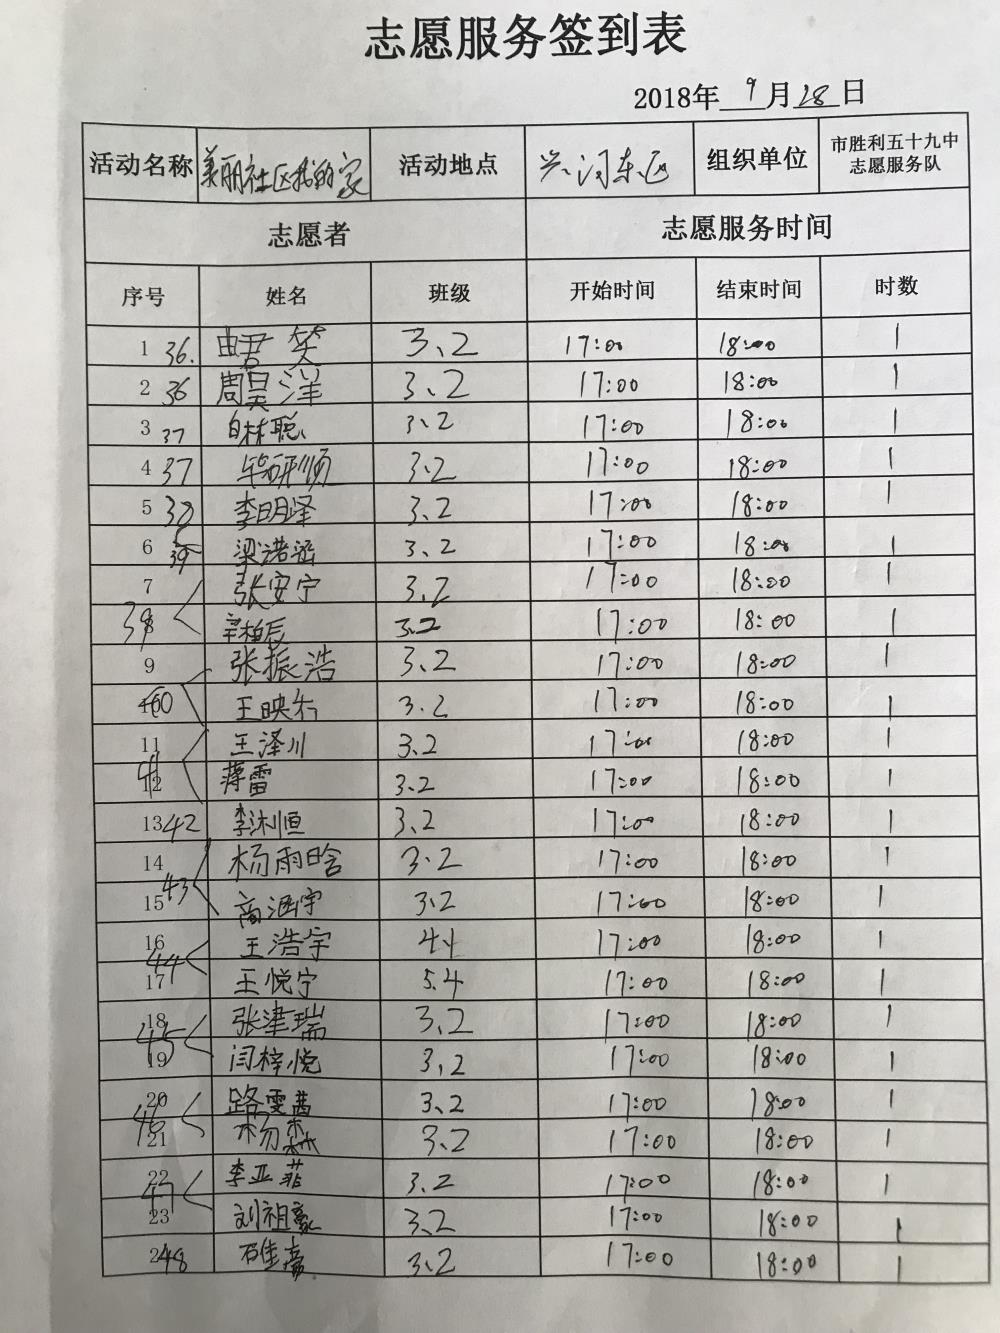 志愿服务签到表
2018年 9 月 28 日
活动名称 美丽社区我的家 活动地点 兴河东区 组织单位 市胜利五十九中
志愿服务队
志愿者 志愿服务时间
序号 姓名 班级 开始时间 结束时间 时数
1 36. 曲君笑 3.2 17:00 18:00 1
2 36 周昊洋 3.2 17:00 18:00 1
3 37 白林聪 3.2 17:00 18:00 1
4 37 3.2 17:00 18:00 1
5 38 李明泽 3.2 17:00 18:00 1
6 39 梁诸 3.2 17:00 18:00 1
7 张安宁 3.2 17:00 18:00 1
39 8 辛柏辰 3.2 17:00 18:00 1
9 张振浩 3.2 17:00 18:00 1
10 王映 3.2 17:00 18:00 1
11 王泽川 3.2 17:00 18:00 1
41 12 蒋雷 3.2 17:00 18:00 1
13 42 李沐恒 3.2 17:00 18:00 1
14 杨雨晗 3.2 17:00 18:00 1
43 15 高涵宇 3.2 17:00 18:00 1
16 王浩宇 4.1 17:00 18:00 1
44 17 王悦宁 5.4 17:00 18:00 1
18 张津瑞 3.2 17:00 18:00 1
45 19 闫梓悦 3.2 17:00 18:00 1
20 路雯茜 3.2 17:00 18:00 1
46 21 杨森 3.2 17:00 18:00 1
22 李亚菲 3.2 17:00 18:00 1
47 23 刘祖豪 3.2 17:00 18:00 1
24 48 石佳 3.2 17:00 18:00 1